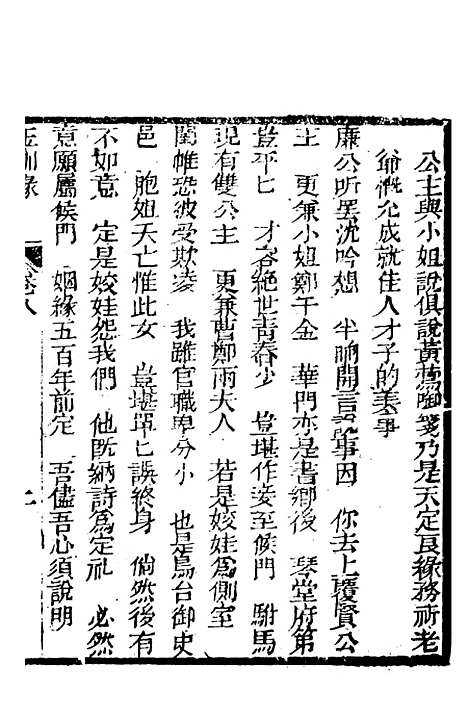 公主與小姐說俱說黃鶯啣箋乃是天定良緣務祈老
爺慨允成就佳人才子的美事
廉公听罢沈吟想　半晌開言說事因　你去上覆賢公
主　更兼小姐鄭千金　華門亦是書鄉後　琴堂府第
豈平匕　才容絶世青春少　豈堪作妾至候門　駙馬
現有雙公主　更兼曹鄭兩夫人　若是姣娃爲側室
閨帷恐彼受欺凌　我雖官職卑分小　也是鳥台御史
邑　胞姐夭亡惟此女　豈堪草匕誤終身　倘然後有
不如意　定是姣娃怨我們　他旣納詩爲定礼　必然
意願屬候門　姻緣五百年前定　吾儘吾心須說明
玉釧縁　卷八